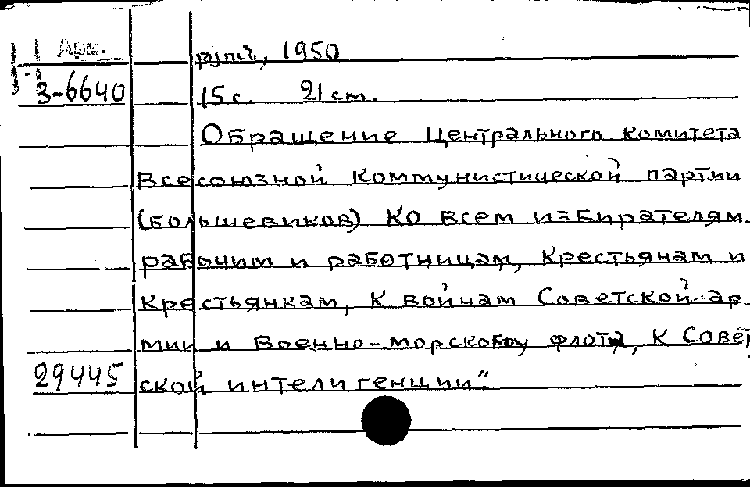 1950
3-6640 15 с. 21 cm.
Обращение Центрального Комитета
Всесоюзной Коммунистической партии
(большевиков) Ко всем избирателям.
рабочим и работницам, Крестьянам и
Крестьянкам, К войнам Советской ар
мии и Военно-морскому флота, К Совет
29445 ской интелигенции"